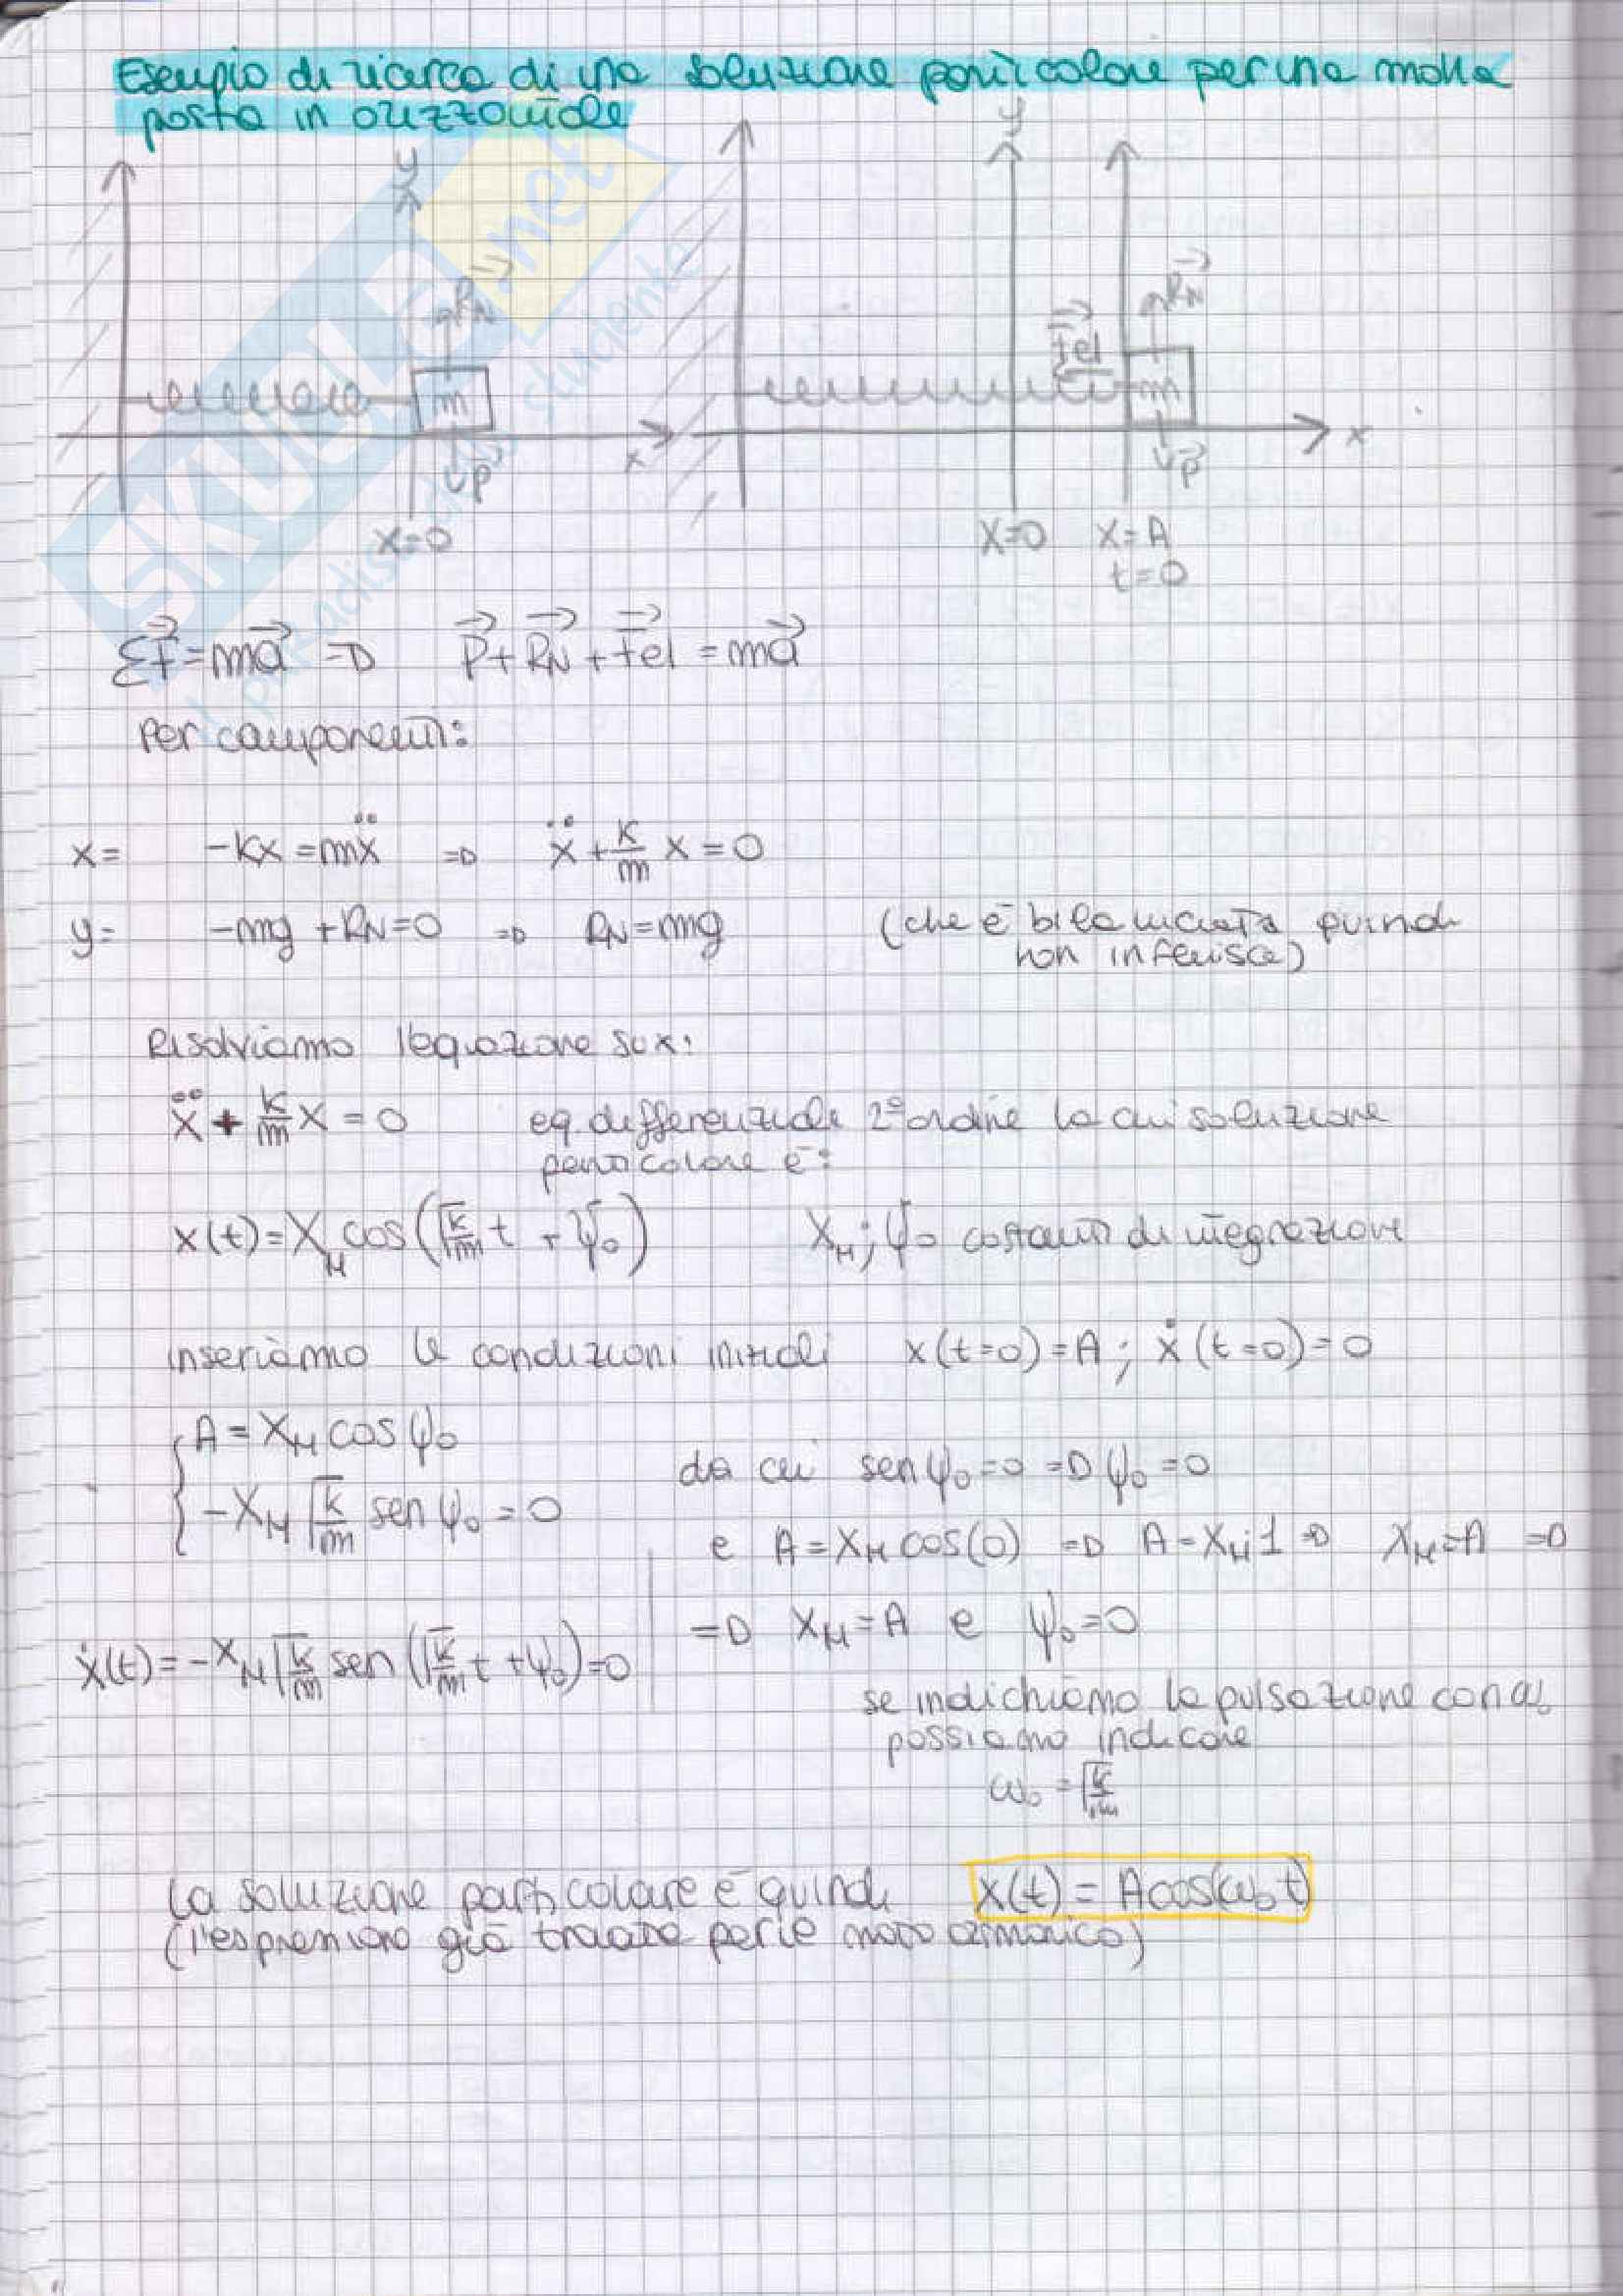 Esempio di ricerca di una soluzione particolare per una molla
posta in orizzontale
y
y
RN
RN
Fel
m
m
P
P
x
x
x=0
x=0
x=A
t=0
ΣF⃗=ma⃗ => P⃗+R⃗N+F⃗el=ma⃗
Per componenti:
x= -kx=mẍ => ẍ+k/m x=0
y= -mg+RN=0 => RN=mg (che è bilanciata quindi
non inferisce)
Risolviamo l'equazione su x:
ẍ+k/m x=0 eq. differenziale 2° ordine la cui soluzione
particolare è:
x(t)=XM cos(√k/m t+ψ0) XM; ψ0 costanti di integrazione
inseriamo le condizioni iniziali x(t=0)=A; ẋ(t=0)=0
A=XM cosψ0
-XM √k/m senψ0=0
da cui senψ0=0 => ψ0=0
e A=XM cos(0) => A=XM·1 => XM=A =>
ẋ(t)=-XM √k/m sen(√k/m t+ψ0)=0
=> XM=A e ψ0=0
se indichiamo la pulsazione con ω0
possiamo indicare
ω0=√k/m
La soluzione particolare è quindi x(t)=Acos(ω0t)
(l'espressione già trovata per le moto armonico)
SKUOLA.net